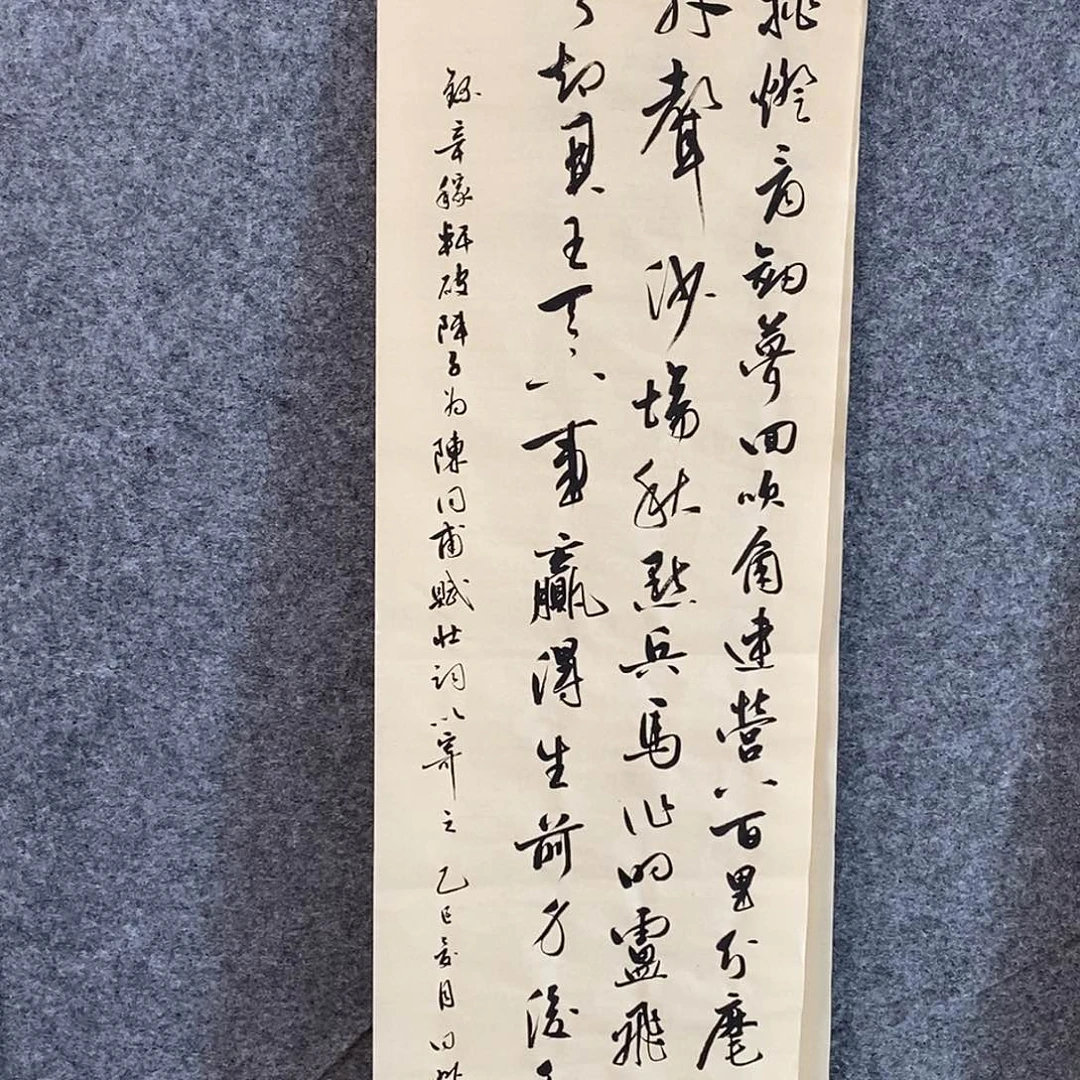 挑燈看劍夢回吹角連營八百里分麾
外聲沙場秋點兵馬作的盧飛
了却君王天下事贏得生前身後
錄辛稼軒破陣子为陳同甫賦壯詞以寄之乙巳夏月